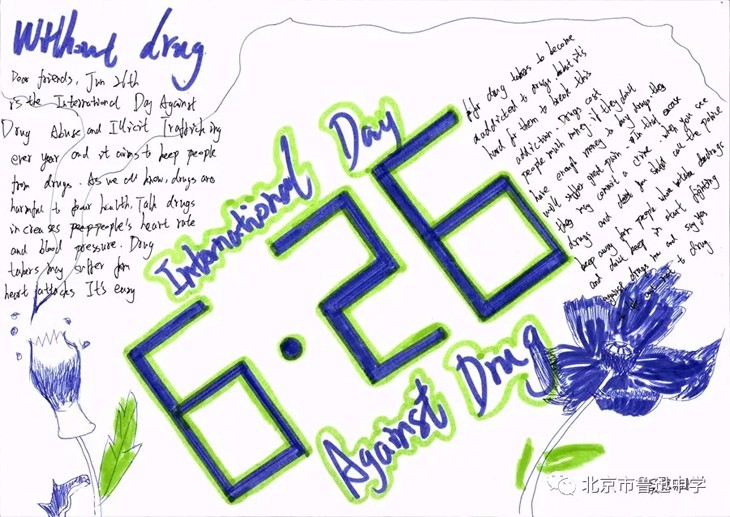 Without drug
Dear friends, Jun 26th
is the International Day Against
Drug Abuse and Illicit Trafficking
ever year and it aims to keep people
from drugs. As we all know, drugs are
harmful to your health. Talk drugs
increases people's heart rate
and blood pressure. Drug
takers may suffer from
heart attacks It's easy
International Day
6·26
Against Drug
for drug takers to become
addicted to drugs but it's
hard for them to break this
addiction. Drugs cost
people much money if they don't
have enough money to buy drugs they
will suffer great pain. In that case
they may commit a crime. When you see
drugs and should call the police
keep away for people who take drugs
and don't keep in start fighting
against drugs now and say
to drug
北京市鲁迅中学